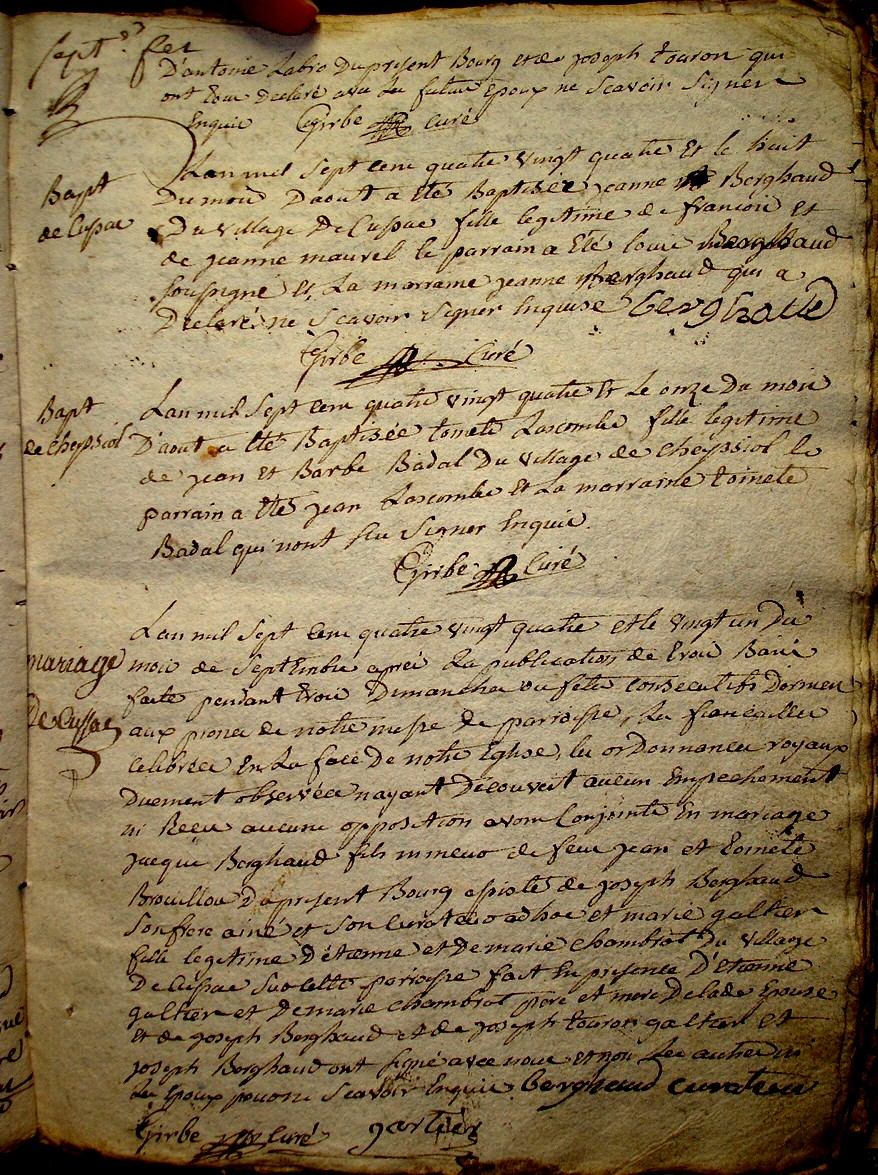 Sept. fer
D'antonie Labro Dupresent Bourg et de joseph touron qui
ont tous Declaré avec Les futurs Epoux ne Scavoir Signer
Enquis Girbe Curé
Bapt
de Cussac
Lan mil Sept cens quatre vingt quatre Et le huit
Du mois Daout a eté Baptisée jeanne Berghaud
Du village De Cussac fille legitime de francois et
de jeanne maurel le parrain a Eté louis Berghaud
soussigné et La marraine jeanne Berghaud qui a
Declaré ne Scavoir Signer Enquise berghaud
Girbe Curé
Bapt
de Cheyssiol
Lan mil Sept cens quatre vingt quatre Et Le onze Du mois
D'aout a eté Baptisée toinete Lascombe fille legitime
de jean Et Barbe Badal Du village de Cheyssiol le
parrain a Eté jean Lascombe Et La marraine toinete
Badal qui n'ont Su Signer Enquis
Girbe Curé
mariage
De Cussac
Lan mil Sept cens quatre vingt quatre et le vingt un Du
mois de Septembre aprés La publication de trois Bans
faite pendant trois Dimanches ou fetes consecutifs
aux prones de notre messe de parroisse, Les fiancailles
celebrées En La face De notre Eglise, les ordonnances royaux
Duement observées nayant Decouvert aucun Empechement
ni Receu aucune opposition avons Conjoints En mariage
jacques Berghaud fils mineur de feu jean et toinete
Brouillou Du present Bourg assisté de joseph Berghaud
Son frere ainé et Son Curateur adhoc et marie galtier
fille legitime D'étienne et De marie Chambrot Du village
De Cussac Sur cette parroisse fait En presence D'Etienne
galtier et De marie Chambrot pere et mere De lade Epouse
Et de joseph Berghaud et de joseph touron galtier et
joseph Berghaud ont signé avec nous et non Les autres ni
Les Epoux pour ne Scavoir Enquis berghaud curateur
Girbe Curé gartier